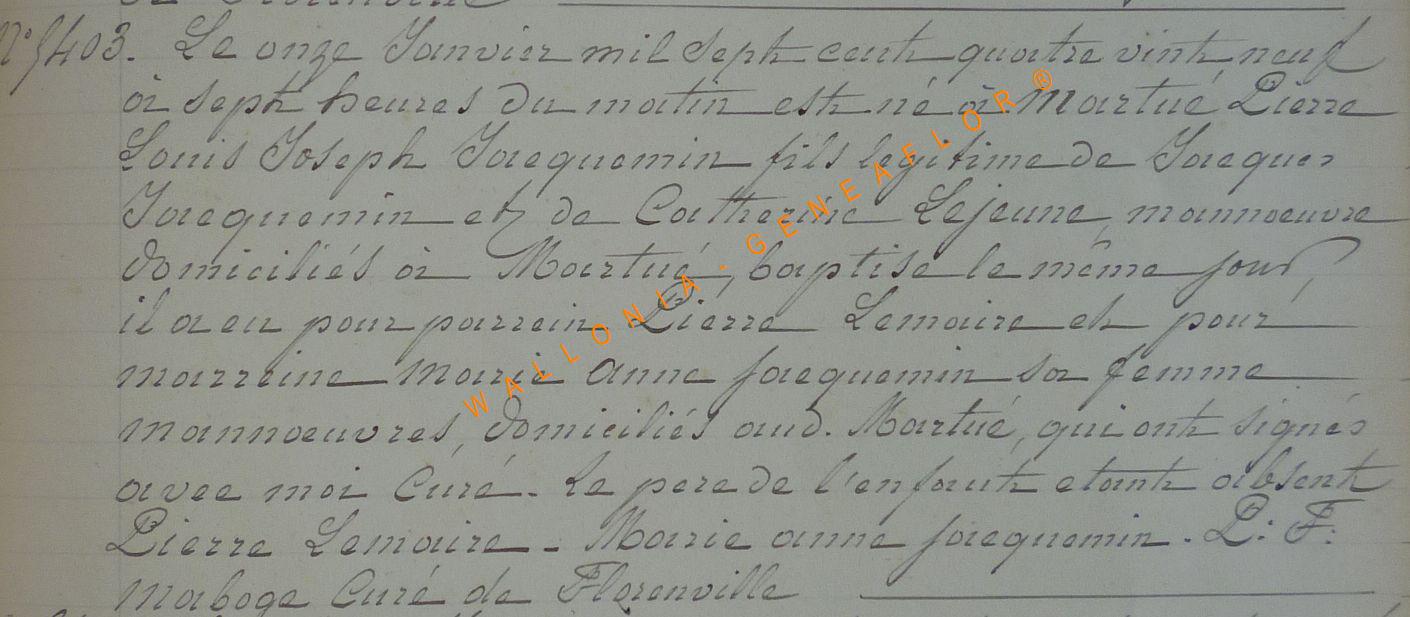 N° 5403. Le onze Janvier mil sept cent quatre vint neuf
à sept heures du matin est né à Martué, Pierre
Louis Joseph Jacquemin fils legitime de Jacques
Jacquemin et de Catherine Lejeune, mannoeuvre
domiciliés à Martué, baptisé le même jour,
il a eu pour parrein Pierre Lemaire et pour
marreine Marie Anne jacquemin sa femme
mannoeuvres, domiciliés aud. Martué, qui ont signés
avec moi Curé. Le pere de l'enfant etant absent
Pierre Lemaire - Marie anne jacquemin. P: F:
maboge Curé de Florenville
WALLONIA - GENEAELOR ®